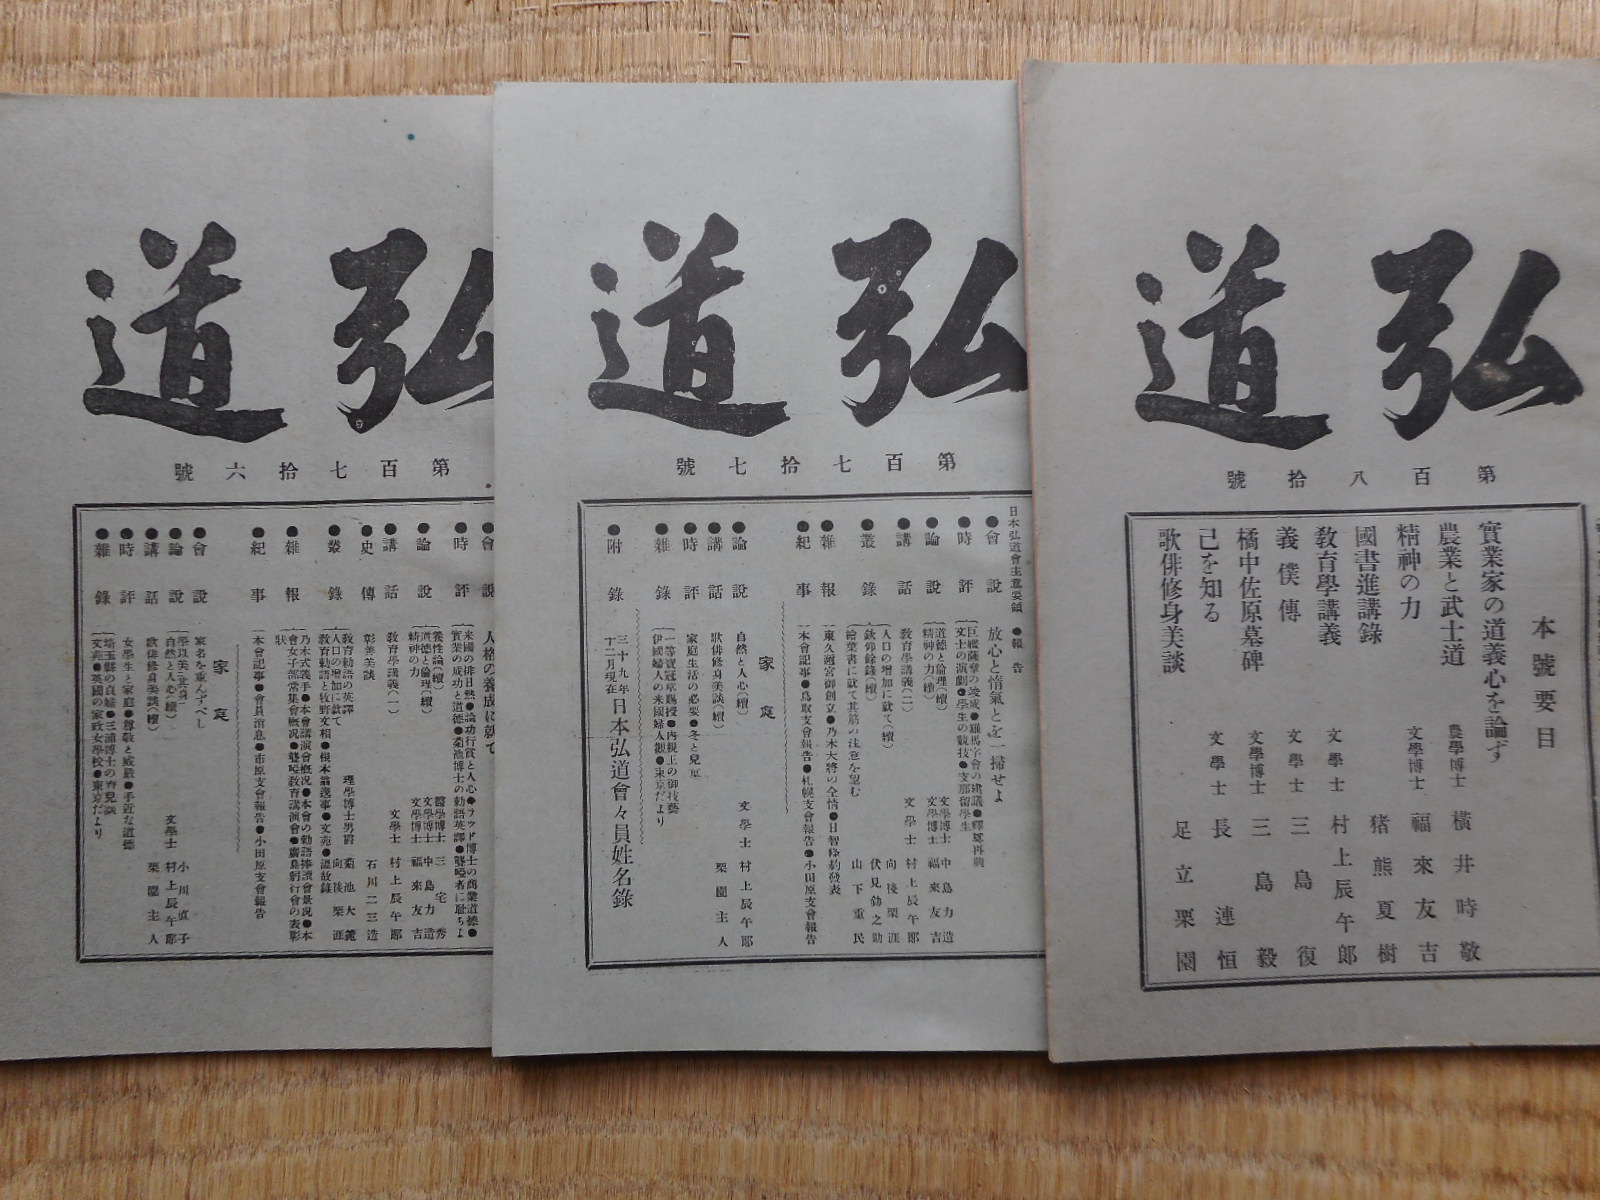 弘道
第百八拾號
本號要目
實業家の道義心を論ず
農業と武士道 農學博士 橫井時敬
精神の力 文學博士 福來友吉
國書進講錄 猪熊夏樹
敎育學講義 文學士 村上辰午郎
義僕傳 文學士 三島復
橘中佐原墓碑 文學博士 三島毅
己を知る 文學士 長連恒
歌俳修身美談 足立栗園
弘道
第百七拾七號
日本弘道會主意要領 ●報告
●會說 放心と惰氣とを一掃せよ
●時評
文士の演劇●學生の競技●支那留學生
●論說 道德と倫理(續) 文學博士 中島力造
精神の力(續) 文學博士 福來友吉
●講話 敎育學講義(二) 文學士 村上辰午郎
●叢錄 人口の增加に就て(續) 向後栗涯
欽仰餘錄(續) 伏見釛之助
繪葉書に就て其筋の注意を望む 山下重民
●雜報 東久邇宮御創立●乃木大將の全情●日智條約發表
●紀事 本會記事●鳥取支會報告●札幌支會報告●小田原支會報告
家庭
●論說 自然と人心(續) 文學士 村上辰午郎
●講話 歌俳修身美談(續) 栗園主人
●時評 家庭生活の必要●冬と兒童
●雜錄 一等寶冠章賜授●內親王の御技藝
伊國婦人の米國婦人觀●東京だより
●附錄 三十九年十二月現在 日本弘道會々員姓名錄
弘道
第百七拾六號
●會說 人格の養成に就て
●時評 米國の排日熱●論功行賞と人心●ラッド博士の商業道德●
實業の成功と道德●菊池博士の勅語英譯●聾啞者に恥ぢよ
●論說 養性論(續) 醫學博士 三宅秀
道德と倫理(續) 文學博士 中島力造
精神の力 文學博士 福來友吉
●講話 敎育學講義(一) 文學士 村上辰午郎
●史傳 彰善美談 石川二三造
●叢錄 敎育勅語の英譯 理學博士男爵 菊池大麓
人口の增加に就て 向後栗涯
敎育勅語と牧野文相●根本翁逸事●文苑●溫故錄
●雜報 乃木式義手●本會講演會槪況●本會の勅語捧讀會景況●本
會女子部常集會槪況●聾啞敎育講演會●廣島躬行會の表彰
狀
●紀事 本會記事●會員消息●市原支會報告●小田原支會報告
家庭
●會說 家名を重んずべし
●論說 小川直子
自然と人心(續) 文學士 村上辰午郎
●講話 歌俳修身美談(續) 栗園主人
●時評 女學生と家庭●尊敬と威嚴●手近な道德
●雜錄 埼玉縣の貞婦●三浦博士の育兒談
文苑●英國の家政女學校●東京だより